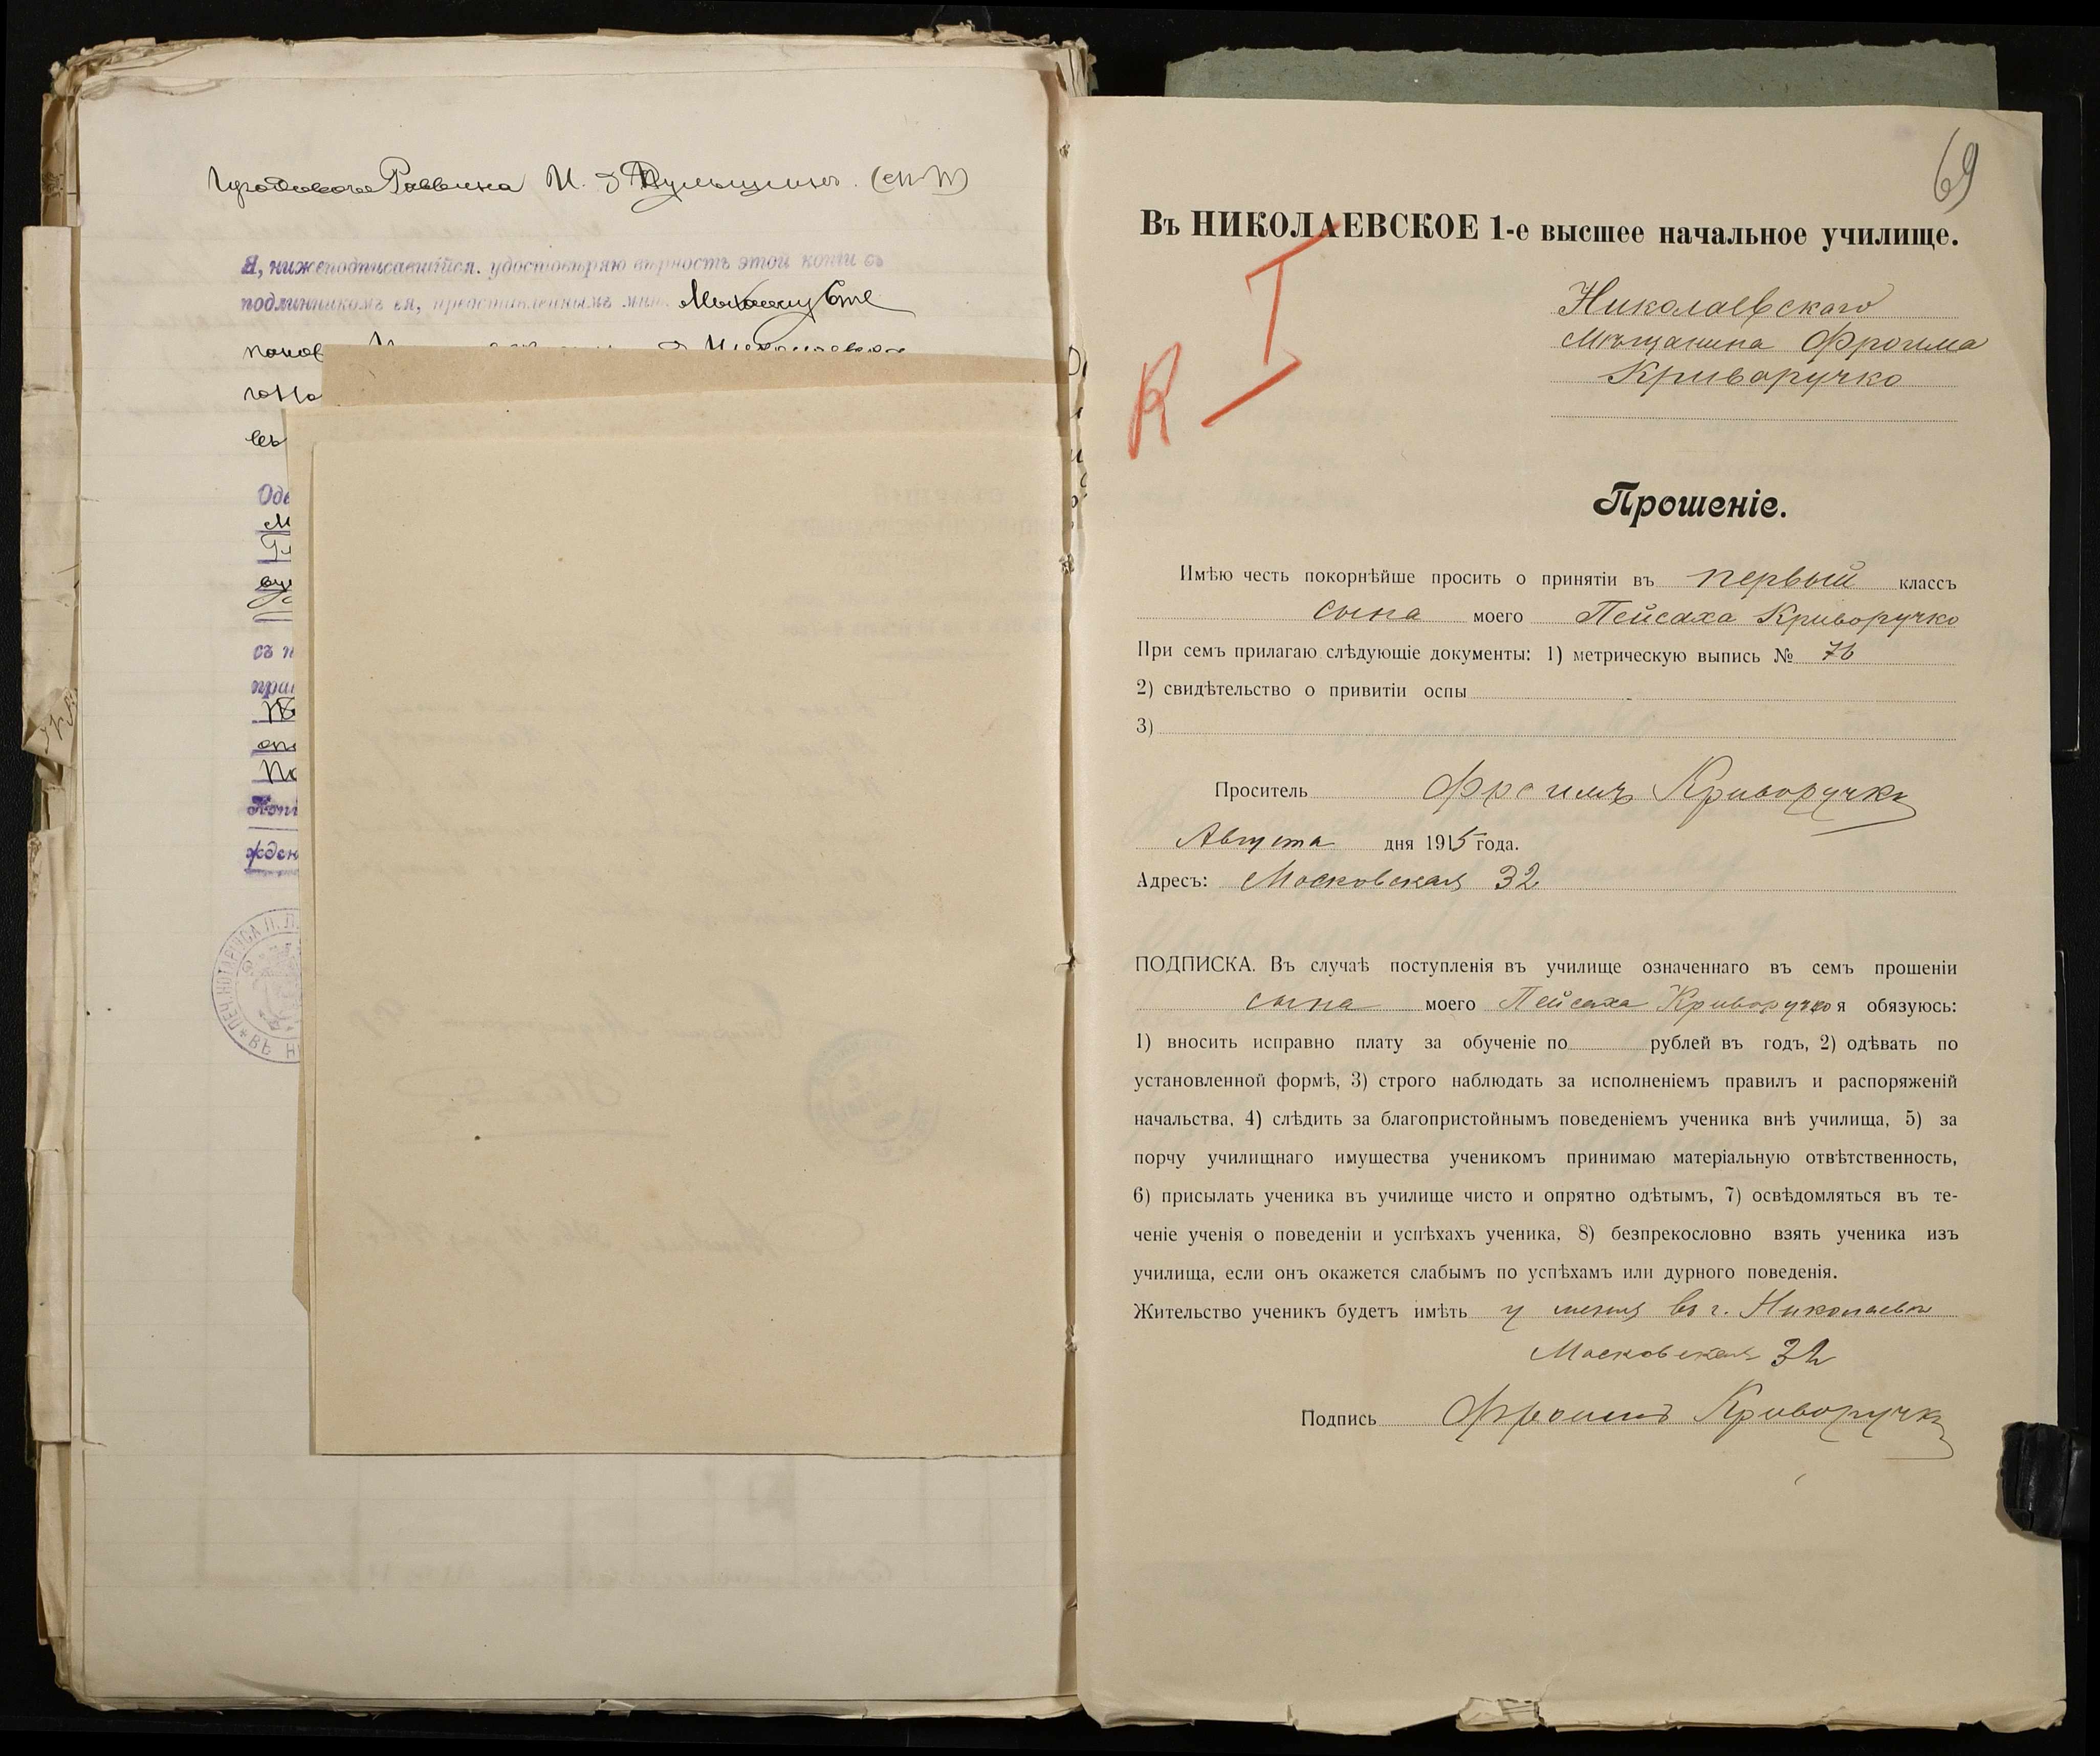 Городового Раввина И.
Я, нижеподписавшійся, удостовѣряю вѣрность этой копіи съ
подлинникомъ ея, представленнымъ мнѣ
Оде
съ п
Копі
жден
ПЕЧ. НОТАРІУСА П. Л.
ВЪ НИ
69
Въ НИКОЛАЕВСКОЕ 1-е высшее начальное училище.
I
R
Николаевскаго
Мѣщанина Фроима
Криворучко
Прошеніе.
Имѣю честь покорнѣйше просить о принятіи въ первый классъ
сына моего Пейсаха Криворучко
При семъ прилагаю слѣдующіе документы: 1) метрическую выпись № 76
2) свидѣтельство о привитіи оспы
3)
Проситель Фроимъ Криворучко
Августа дня 1915 года.
Адресъ: Московская 32
ПОДПИСКА. Въ случаѣ поступленія въ училище означеннаго въ семъ прошеніи
сына моего Пейсаха Криворучко я обязуюсь:
1) вносить исправно плату за обученіе по рублей въ годъ, 2) одѣвать по
установленной формѣ, 3) строго наблюдать за исполненіемъ правилъ и распоряженій
начальства, 4) слѣдить за благопристойнымъ поведеніемъ ученика внѣ училища, 5) за
порчу училищнаго имущества ученикомъ принимаю матеріальную отвѣтственность,
6) присылать ученика въ училище чисто и опрятно одѣтымъ, 7) освѣдомляться въ те-
ченіе ученія о поведеніи и успѣхахъ ученика, 8) безпрекословно взять ученика изъ
училища, если онъ окажется слабымъ по успѣхамъ или дурного поведенія.
Жительство ученикъ будетъ имѣть у меня въ г. Николаевѣ
Московская 32
Подпись Фроимъ Криворучко